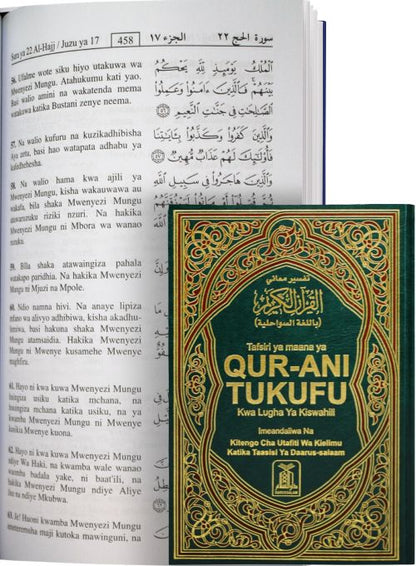 Sura ya 22 Al-Hajj / Juzu ya 17
458
الجزء ١٧
سورة الحج ٢٢
56. Ufalme wote siku hiyo utakuwa wa
Mwenyezi Mungu. Atahukumu kati yao.
Basi walio amini na wakatenda mema
watakuwa katika Bustani zenye neema.
57. Na walio kufuru na kuzikadhibisha
Aya zetu, basi hao watapata adhabu ya
kufedhehesha.
58. Na walio hama kwa ajili ya
Mwenyezi Mungu, kisha wakauwawa au
wakafa, bila shaka Mwenyezi Mungu
atawaruzuku riziki nzuri. Na hakika
Mwenyezi Mungu ni Mbora wa wanao
ruzuku.
59. Bila shaka atawaingiza pahala
watakapo paridhia. Na hakika Mwenyezi
Mungu ni Mjuzi na Mpole.
60. Ndio namna hivi. Na anaye lipiza
mfano wa alivyo adhibiwa, kisha akadhu-
lumiwa, basi hakuna shaka Mwenyezi
Mungu atamsaidia. Hakika Mwenyezi
Mungu ni Mwenye kusamehe Mwenye
maghfira.
61. Hayo ni kwa kuwa Mwenyezi Mungu
huingiza usiku katika mchana, na
huingiza mchana katika usiku, na ya
kwamba Mwenyezi Mungu ni Mwenye
kusikia Mwenye kuona.
62. Hayo ni kwa kuwa Mwenyezi Mungu
ndiye Wa Haki, na kwamba wale wanao
waomba badala yake, ni baat'ili, na
hakika Mwenyezi Mungu ndiye Aliye
Juu na ndiye Mkubwa.
63. Je! Huoni kwamba Mwenyezi Mungu
ameteremsha maji kutoka mawinguni, na
الملك يومئذ لله يحكم
بينهم فالذين ءامنوا وعملوا
الصالحات في جنات النعيم
والذين كفروا وكذبوا بآياتنا
فأولئك لهم عذاب مهين
والذين هاجروا في سبيل الله
تفسير معاني
القرآن الكريم
(باللغة السواحلية)
Tafsiri ya maana ya
QUR-ANI
TUKUFU
Kwa Lugha Ya Kiswahili
Imeandaliwa Na
Kitengo Cha Utafiti Wa Kielimu
Katika Taasisi Ya Daarus-salaam
DARUSSALAM